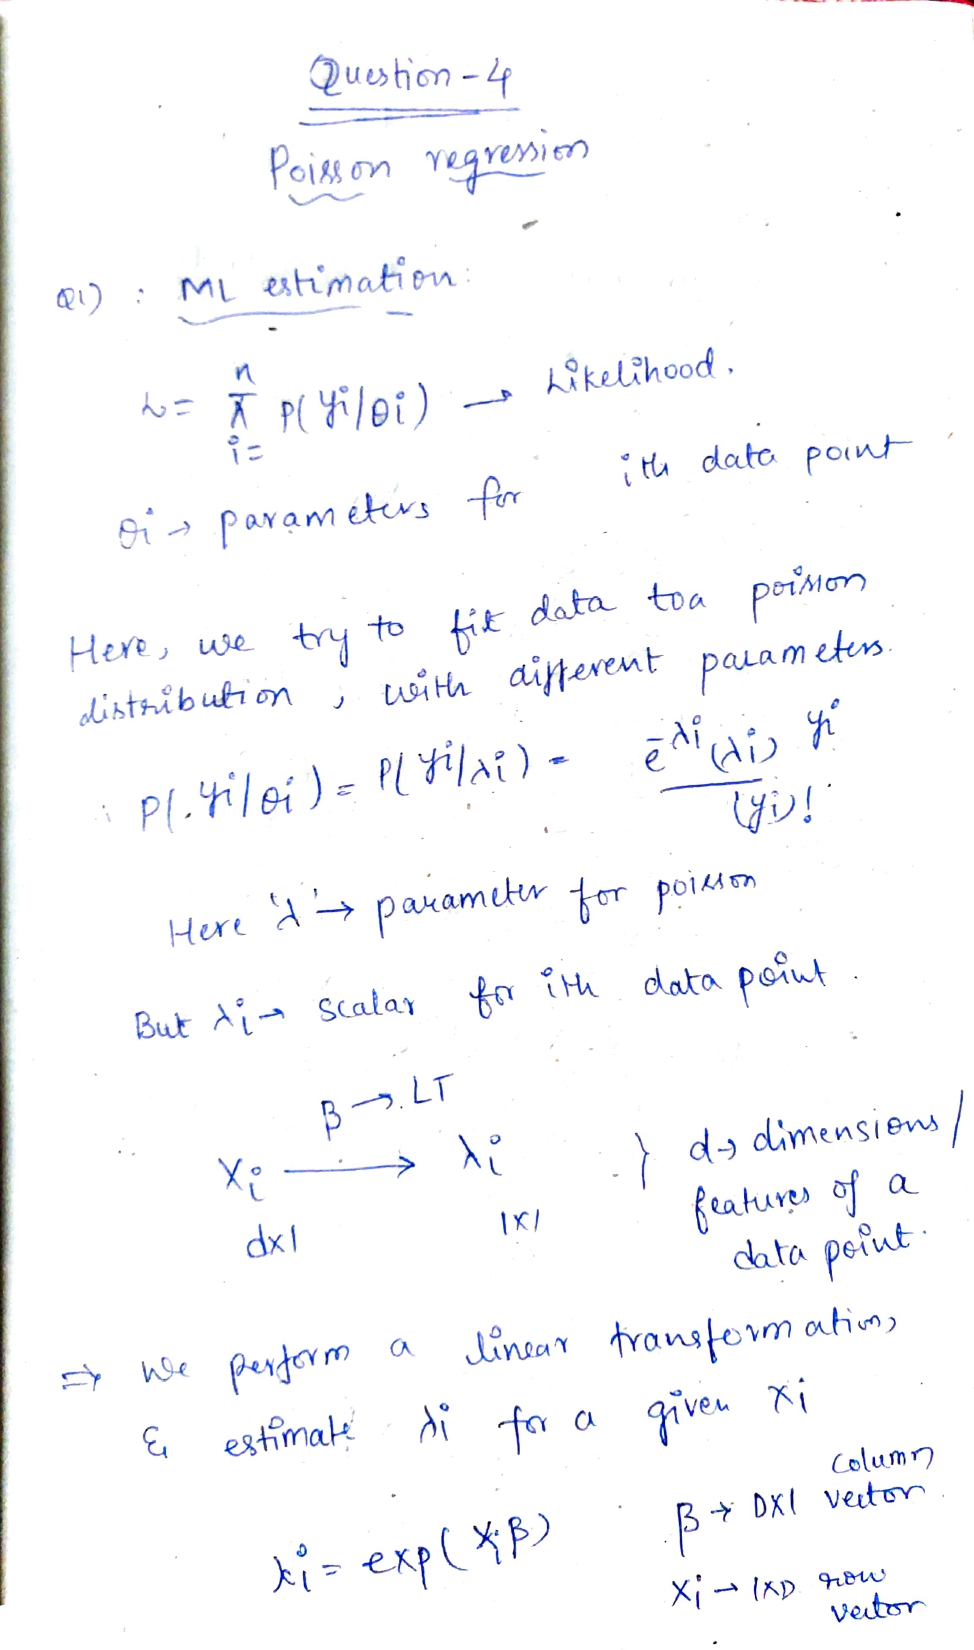 Question-4
Poisson regression
Q1) : ML estimation:
L = π_{i=}^{n} P(yi/θi) → Likelihood.
θi → parameters for ith data point
Here, we try to fit data to a poisson
distribution, with different parameters.
∴ P(yi/θi) = P(yi/λi) = e^{-λi} (λi)^{yi} / (yi)!
Here 'λ' → parameter for poisson
But λi → scalar for ith data point.
β → LT
Xi → λi } d → dimensions/
dx1 1x1 features of a
data point.
⇒ We perform a linear transformation,
& estimate λi for a given xi
λi = exp(Xiβ) β → DX1 column vector
Xi → 1XD row vector